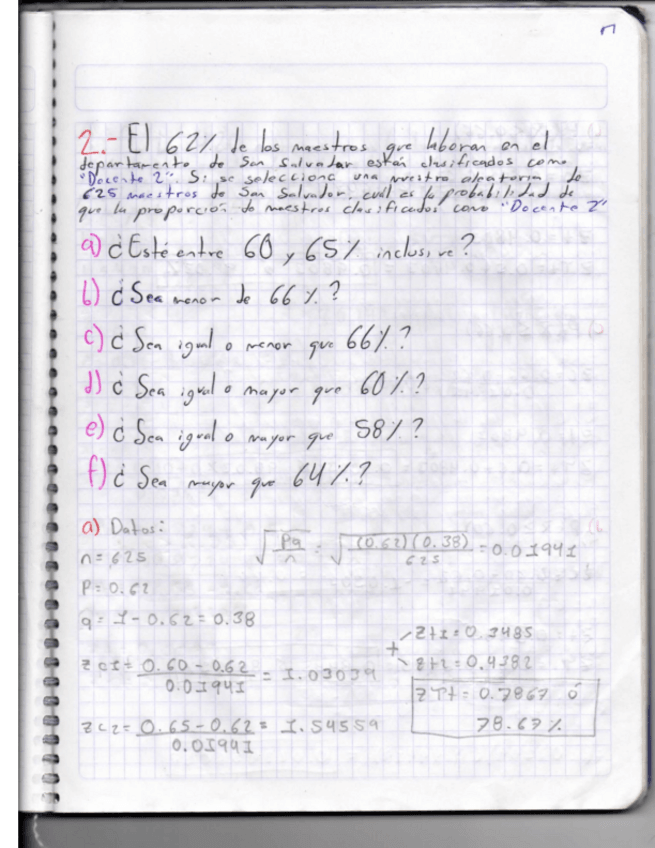 2.- El 62% de los maestros que laboran en el
departamento de San Salvador están clasificados como
"Docente 2". Si se selecciona una muestra aleatoria de
625 maestros de San Salvador, cuál es la probabilidad de
que la proporción de maestros clasificados como "Docente 2"
a) ¿Esté entre 60 y 65% inclusive?
b) ¿Sea menor de 66%?
c) ¿Sea igual o menor que 66%?
d) ¿Sea igual o mayor que 60%?
e) ¿Sea igual o mayor que 58%?
f) ¿Sea mayor que 64%?
a) Datos:
n = 625
P = 0.62
q = 1 - 0.62 = 0.38
√Pq/n = √(0.62)(0.38)/625 = 0.01941
Zc1 = 0.60 - 0.62/0.01941 = 1.03039
Zc2 = 0.65 - 0.62/0.01941 = 1.54559
+ Zt1 = 0.3485
Zt2 = 0.4382
ZTt = 0.7867 ó
78.67%